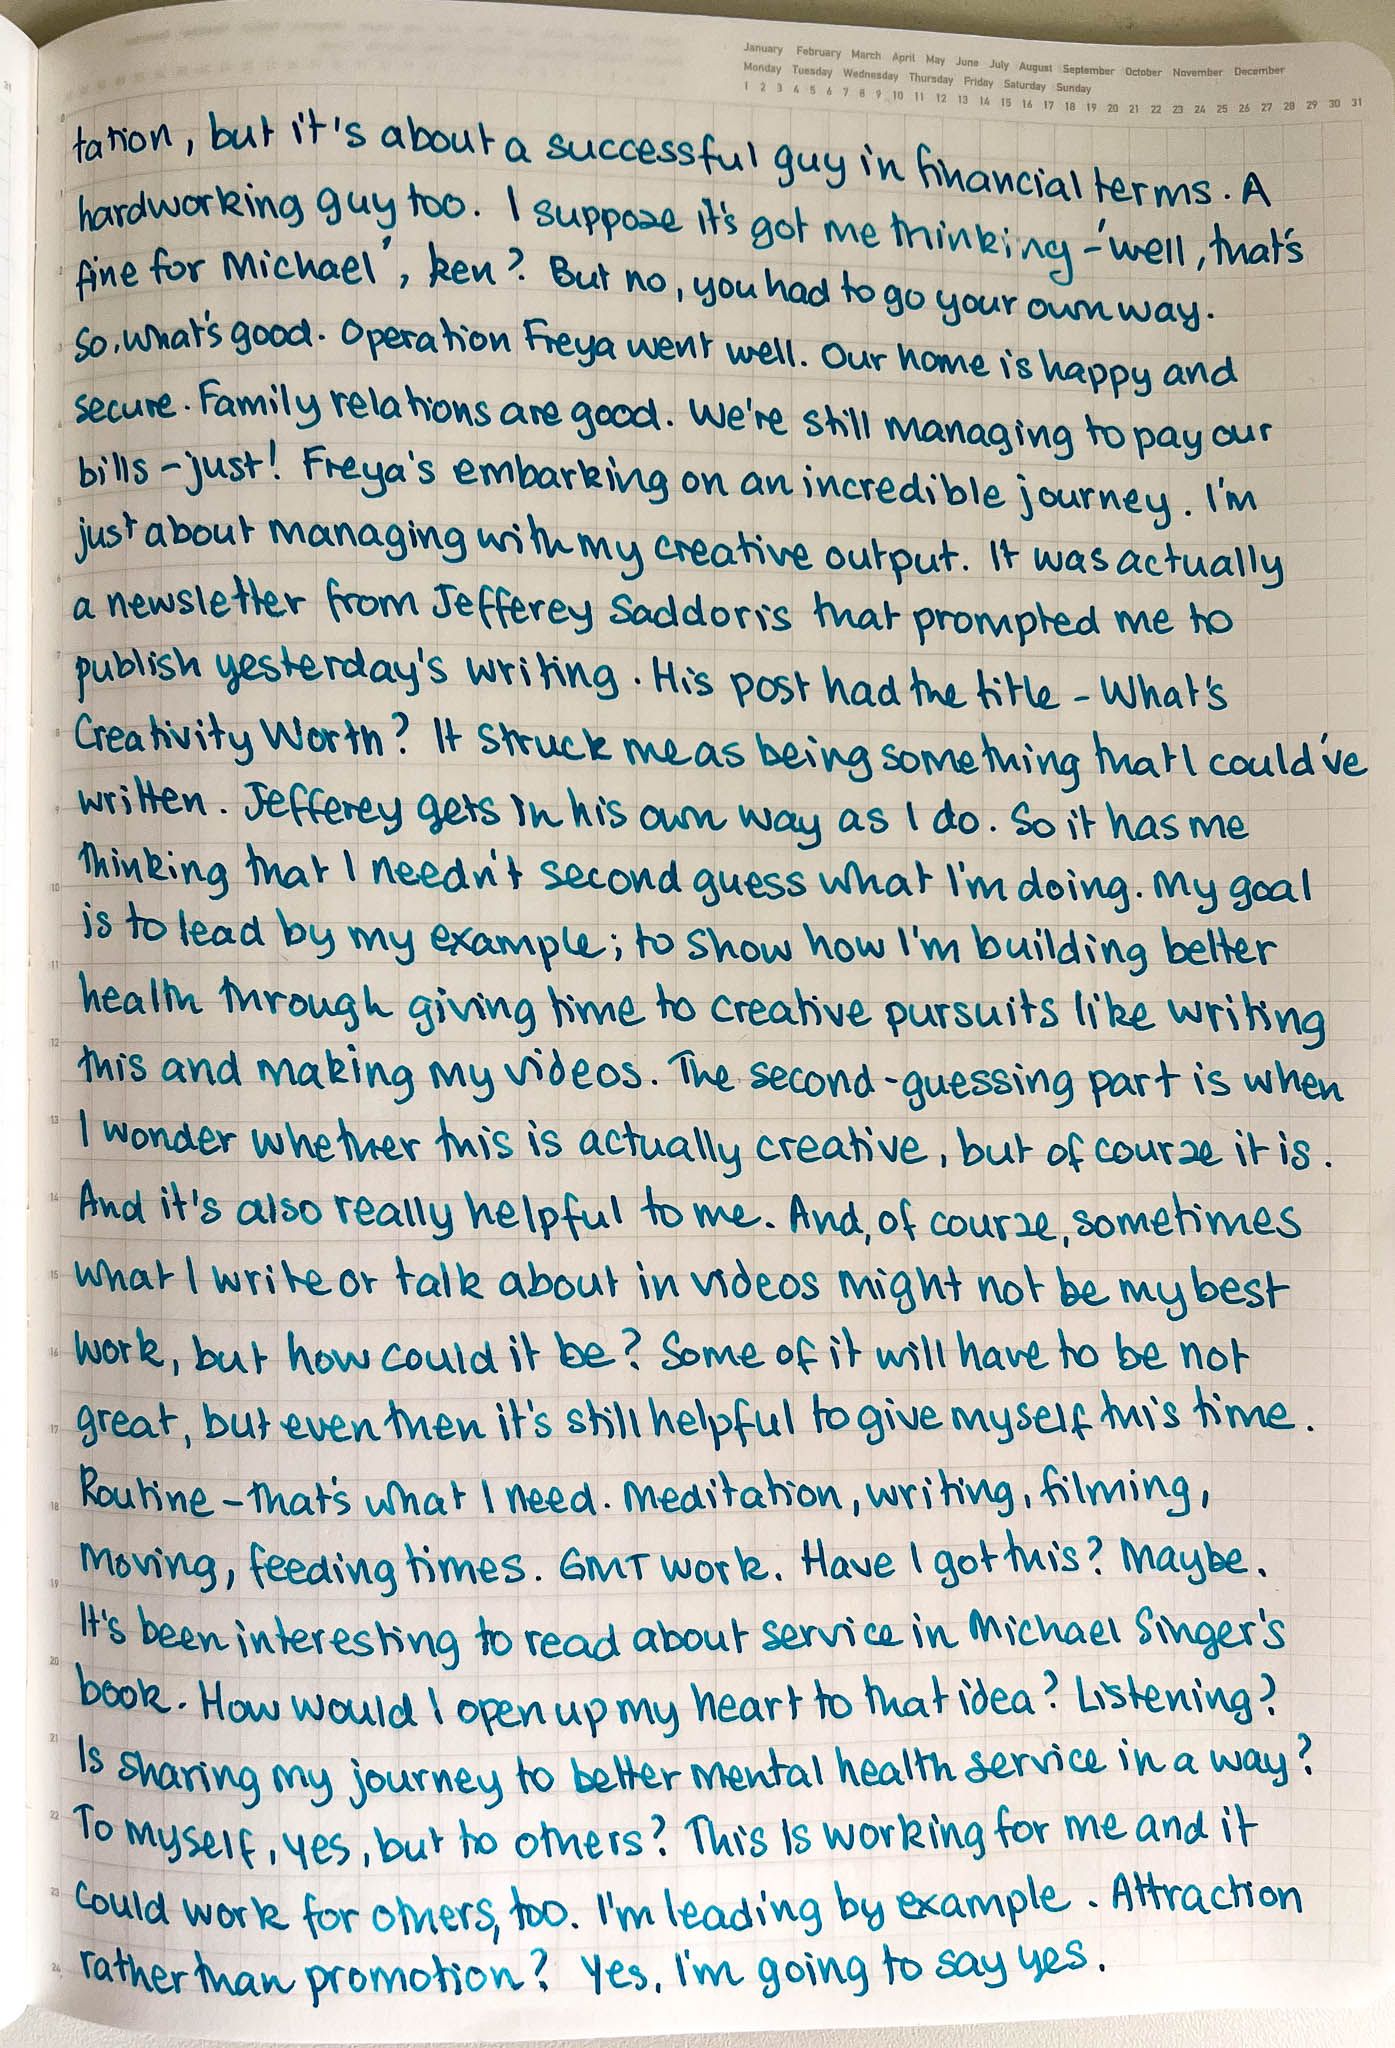 January February March April May June July August September October November December
Monday Tuesday Wednesday Thursday Friday Saturday Sunday
1 2 3 4 5 6 7 8 9 10 11 12 13 14 15 16 17 18 19 20 21 22 23 24 25 26 27 28 29 30 31
tation, but it's about a successful guy in financial terms. A
hardworking guy too. I suppose it's got me thinking - 'well, that's
fine for Michael', ken? But no, you had to go your own way.
So, what's good. Operation Freya went well. Our home is happy and
secure. Family relations are good. We're still managing to pay our
bills - just! Freya's embarking on an incredible journey. I'm
just about managing with my creative output. It was actually
a newsletter from Jefferey Saddoris that prompted me to
publish yesterday's writing. His post had the title - What's
Creativity Worth? It struck me as being something that I could've
written. Jefferey gets in his own way as I do. So it has me
thinking that I needn't second guess what I'm doing. My goal
is to lead by my example; to show how I'm building better
health through giving time to creative pursuits like writing
this and making my videos. The second-guessing part is when
I wonder whether this is actually creative, but of course it is.
And it's also really helpful to me. And, of course, sometimes
what I write or talk about in videos might not be my best
work, but how could it be? Some of it will have to be not
great, but even then it's still helpful to give myself this time.
Routine - that's what I need. Meditation, writing, filming,
moving, feeding times. GMT work. Have I got this? Maybe.
It's been interesting to read about service in Michael Singer's
book. How would I open up my heart to that idea? Listening?
Is sharing my journey to better mental health service in a way?
To myself, yes, but to others? This is working for me and it
could work for others, too. I'm leading by example. Attraction
rather than promotion? Yes, I'm going to say yes.